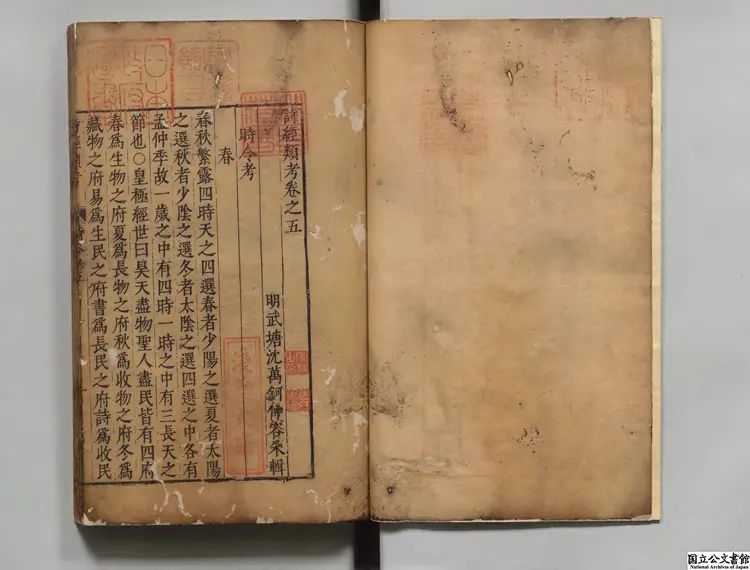 詩經類考卷之五
明武塘沈萬鈳仲容采輯
時令考
春
春秋繁露四時天之四選春者少陽之選夏者太陽
之選秋者少陰之選冬者太陰之選四選之中各有
孟仲季故一歲之中有四時一時之中有三長天之
節也○皇極經世曰昊天盡物聖人盡民皆有四府
春爲生物之府夏爲長物之府秋爲收物之府冬爲
藏物之府易爲生民之府書爲長民之府詩爲收民
詩經類考
日本
国立公文書館
National Archives of Japan